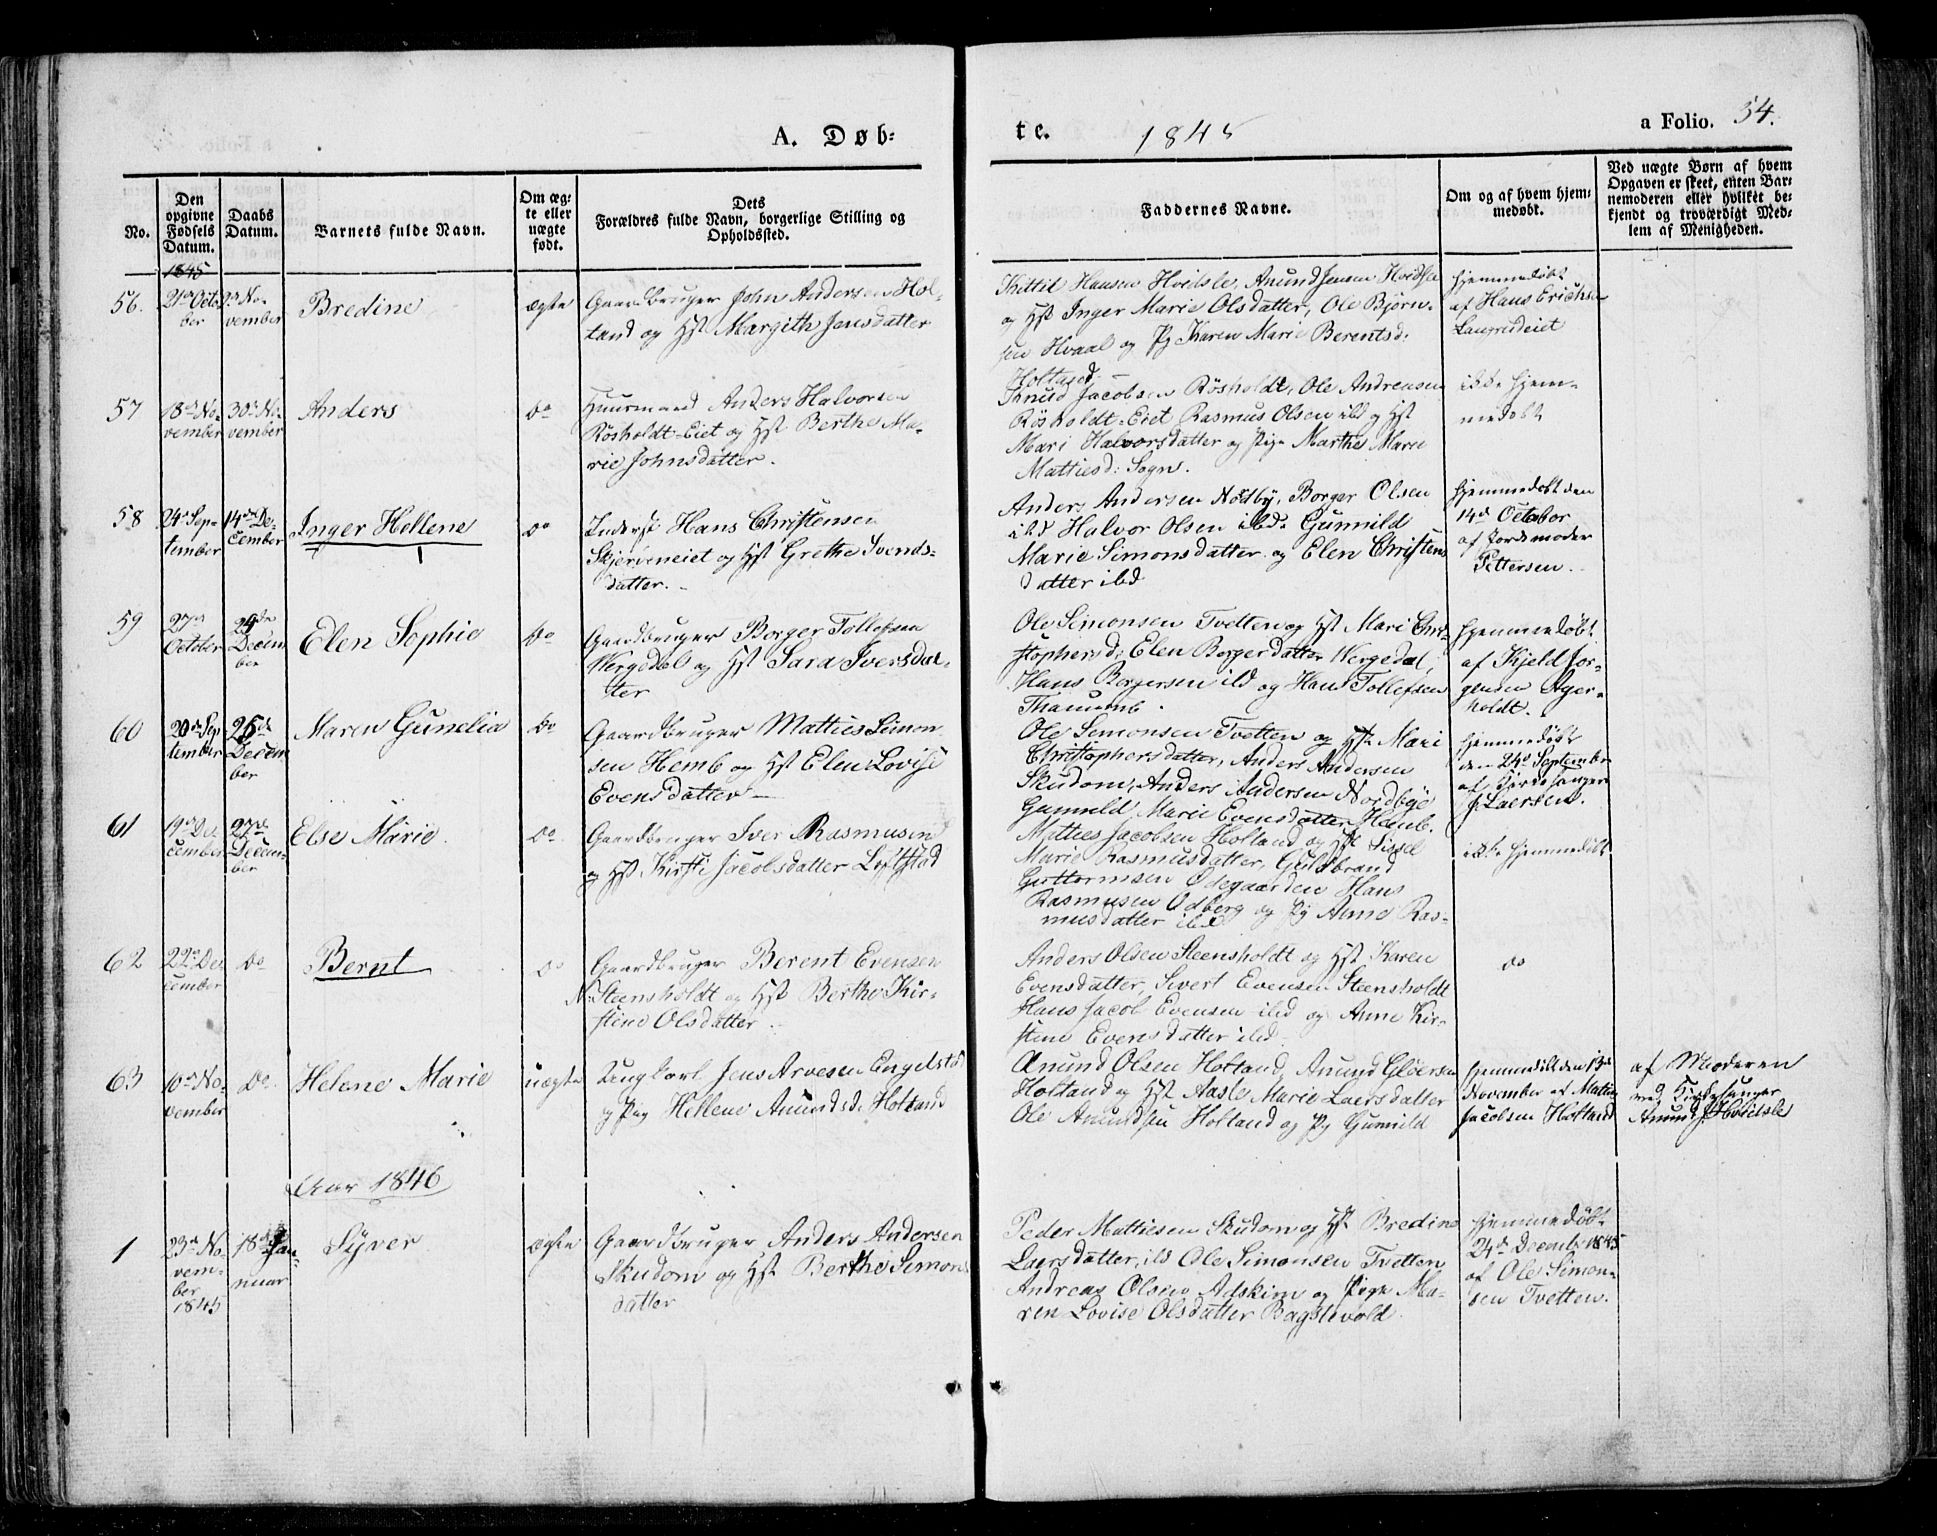 A. Døb-
te.
1845
a Folio. 54.
No.
Den opgivne Fødsels Datum.
Daabs Datum.
Barnets fulde Navn.
Om ægte eller uægte født.
Dets Forældres fulde Navn, borgerlige Stilling og Opholdssted.
Faddernes Navne.
Om og af hvem hjemmedøbt.
Ved uægte Børn af hvem
Opgaven er skeet, enten Bar-
nemoderen eller hvilket be-
kjendt og troværdigt Med-
lem af Menigheden.
1845
56.
21de Octo-
ber
No-
vember
Bredine
ægte
Gaardbruger John Andersen Hol-
tand og Hst Margith Jensdatter
Kittil Hansen Hvidsle, Anund Jensen Hvidsle
og Hst Inger Marie Olsdatter, Ole Bjørn-
sen Hvaal og Pg Karen Marie Berentsd:
Holtand.
Hjemmedøbt
af Hans Erichsen
Laugrudeiet
57
18de No-
vember
30te No-
vember
Anders
do
Huusmand Anders Halvorsen
Røsholdt-Eiet og Hst Berthe Ma-
rie Johnsdatter.
Knud Jacobsen Røsholdt, Ole Andreasen
Røsholdt-Eiet Rasmus Olsen ibd og Hst
Mari Halvorsdatter og Pige Marthe Marie
Mattiesd: Sogn.
ikke hjem-
medøbt
58
24de Sep-
tember
14de De-
cember
Inger Hellene
do
Inderst Hans Christensen
Skjerveneiet og Hst Grethe Svends-
datter.
Anders Andersen Nordby, Borger Olsen
ibd Halvor Olsen ibd. Gunnild
Marie Simonsdatter og Elen Christens
datter ibd
Hjemmedøbt den
14de October
af Jordemoder
Pettersen.
59
27de
October
Decem
ber
Elen Sophie
do
Gaardbruger Borger Tollefsen
Wergedal og Hst Sara Iversdat-
ter
Ole Simonsen Tvetten og Hst Mari Chri-
stophersd: Elen Borgerdatter Wergedal,
Hans Borgersen ibd og Hans Tollefsen
Hjemmedøbt
af Kjeld Jør-
gensen Ager-
holdt.
60
20de Sep
tember
26de
Decem
ber
Maren Gunelia
do
Gaardbruger Matties Simon-
sen Hemb og Hst Elen Lovise
Evensdatter
Ole Simonsen Tvetten og Hst Mari
Christophersdatter, Anders Andersen
Skudom, Anders Andersen Nordbye
Gunnild Marie Evensdatter Hemb.
Hjemmedøbt
den 24de September
af Kirkesanger
J. Laersen.
61
19de De-
cember
27de
Decem-
ber
Else Marie
do
Gaardbruger Iver Rasmusen
og Hst Kirsti Jacobsdatter Løftstad
Matties Jacobsen Holtand og Hst Sissel
Marie Rasmusdatter, Guldbrand
Guttormsen Ødegaarden Hans
Rasmusen Odberg og Pg Anne Ras-
musdatter ibd
ikke hjemmedøbt
62
22de De-
cember
do
Bernt
do
Gaardbruger Berent Evensen
N: Steensholdt og Hst Berthe Kir-
stine Olsdatter
Anders Olsen Steensholdt og Hst Karen
Evensdatter, Sivert Evensen Steensholdt
Hans Jacob Evensen ibd og Anne Kir-
stine Evensdatter ibd
do
63
10de No-
vember
Do
Helene Marie
uægte
Ungkarl Jens Arvesen Engelstad
og Pig Hellene Anundsd: Holtand
Anund Olsen Holtand, Anund Gloersen
Holtand og Hst Aasle Marie Laersdatter
Ole Anundsen Holtand og Pg Gunnild
Hjemmedøbt den 13de
November af Matties
Jacobsen Holtand
af Moderen
med Kirkesanger
Anund J. Hvidsle
Aar 1846
1
23de No-
vem-
ber
1845
18de Jan-
nuar
Syver
ægte
Gaardbruger Anders Andersen
Skudom og Hst Berthe Simons
datter
Peder Mattiesen Skudom og Hst Bredine
Laersdatter, ibd Ole Simonsen Tvetten
Andreas Olsen Adskim og Pige Ma-
ren Lovise Olsdatter Bagslevold.
Hjemmedøbt
24de Decembr 1845
af Ole Simon-
sen Tvetten.